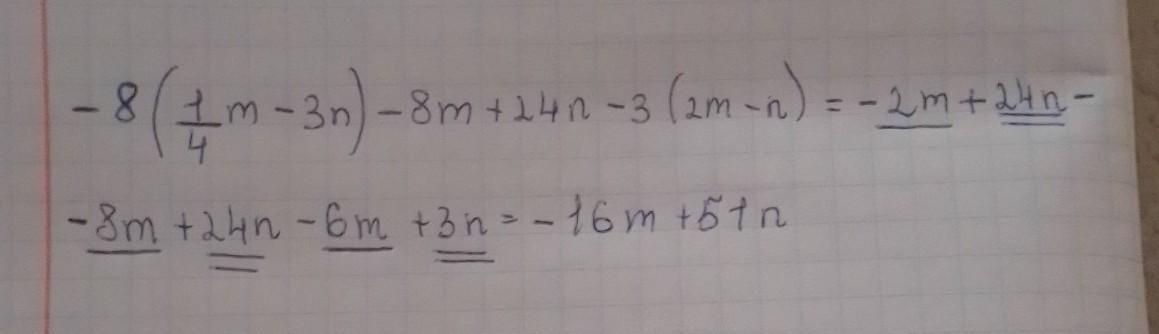 -8(1/4 m - 3n) - 8m + 24n - 3(2m - n) = -2m + 24n -
-8m + 24n - 6m + 3n = -16m + 51n